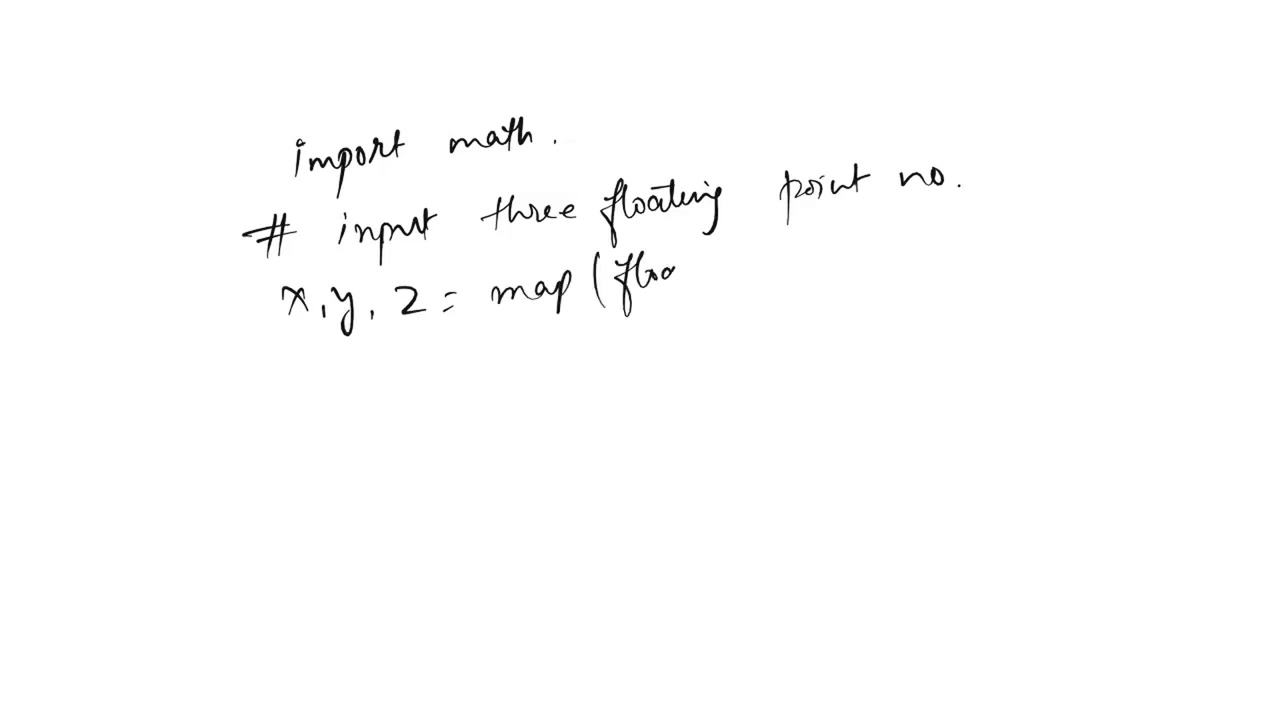 import math.
# input three floating point no.
x, y, z = map (floa